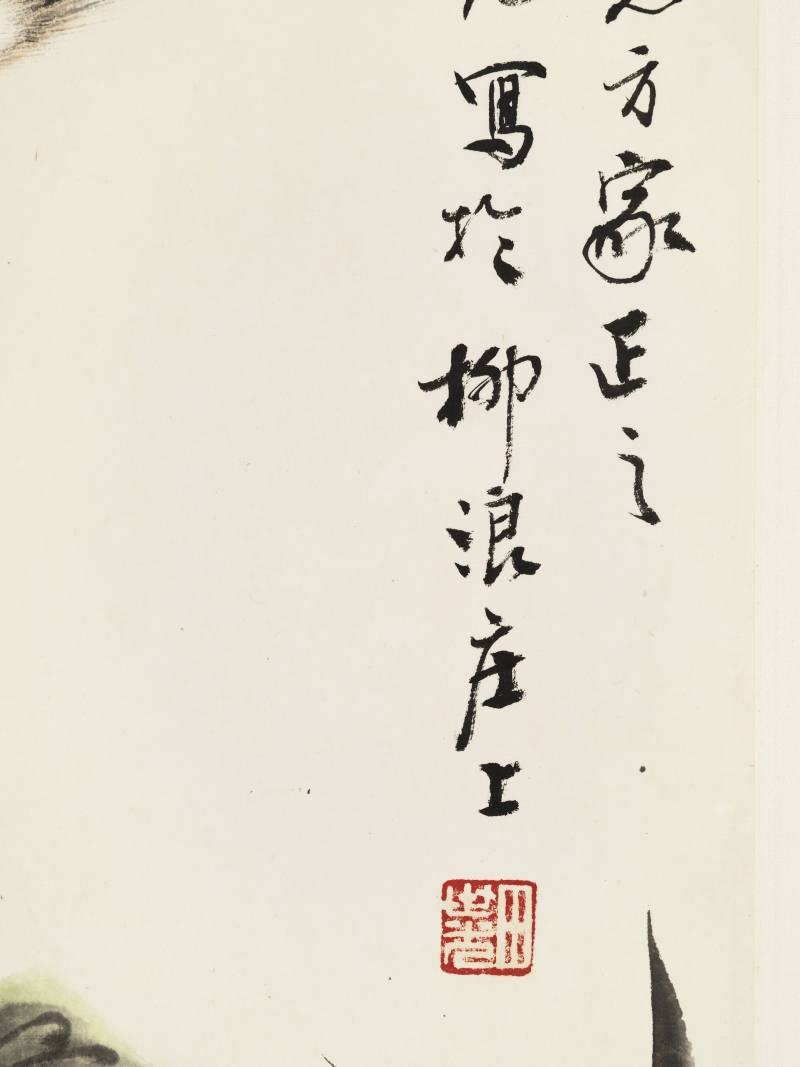 方家正之
寫於柳浪庄上